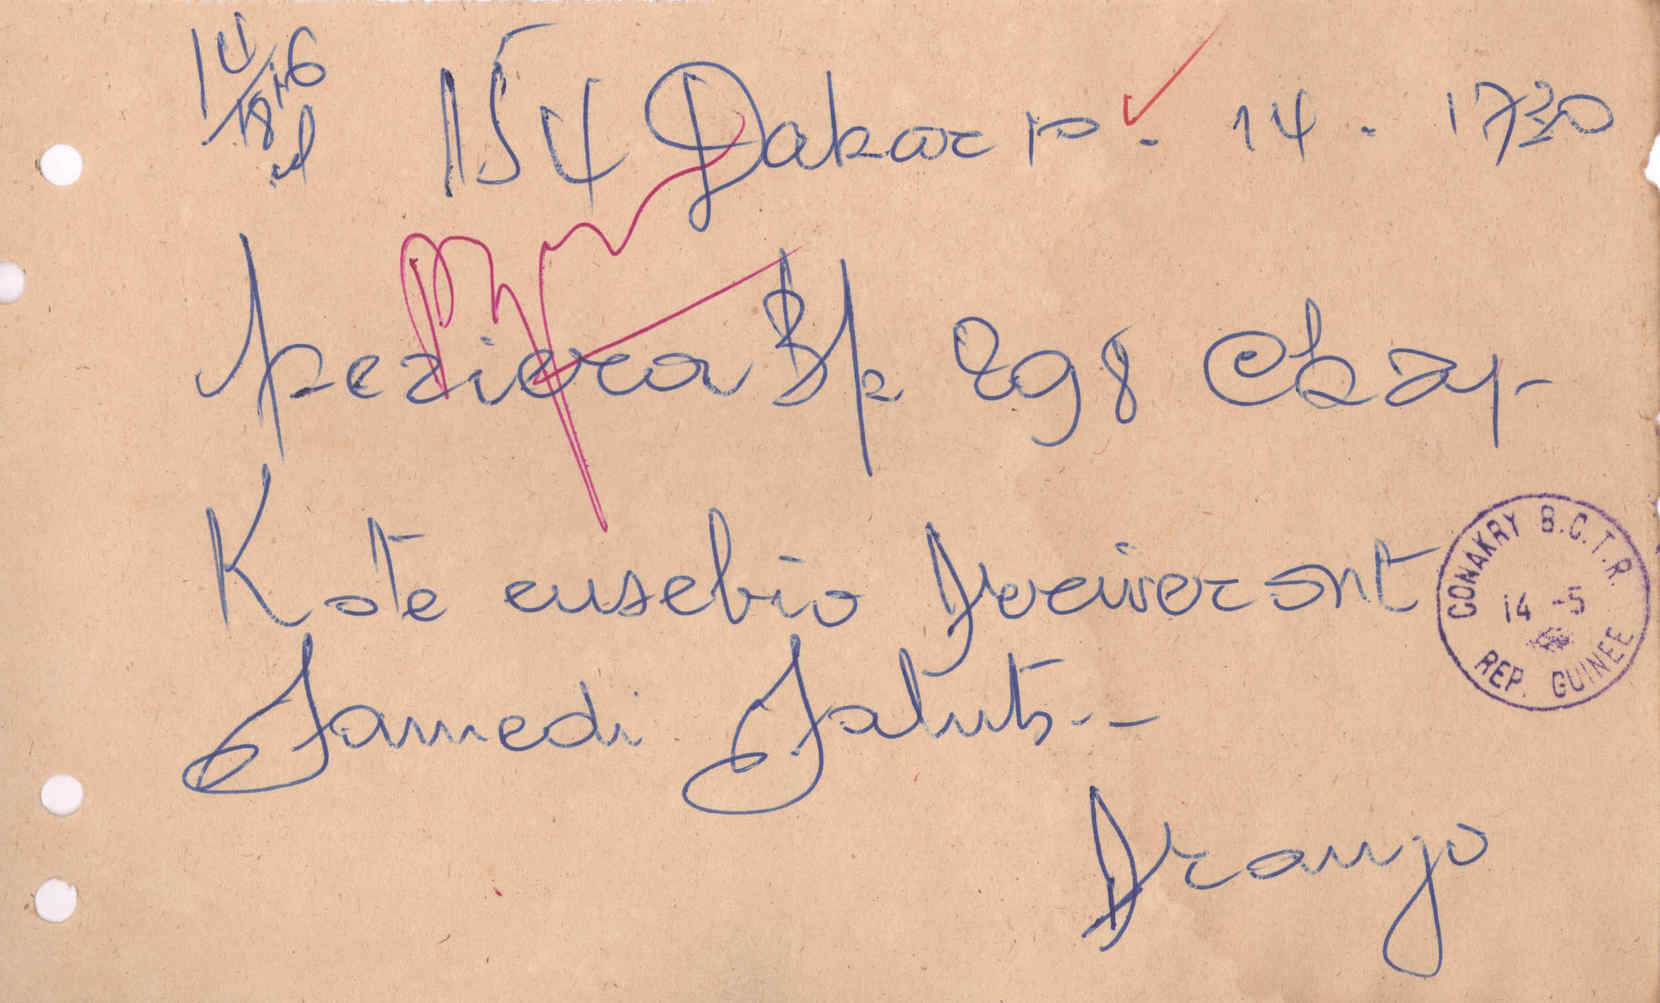 14/5 16
18
154 Dakar 10 . 14 . 1730
pereira Bp 298 Ckry -
Kote eusebio Arriveront
Samedi Saluts --
Araujo
CONAKRY B.C.T.R.
14 -5
REP. GUINEE